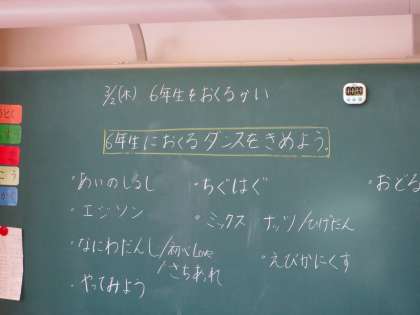 3/2(木) 6年生をおくるかい
6年生におくるダンスをきめよう。
・あいのしるし
・ちぐはぐ
・おどる
・エジソン
・ミックスナッツ/ひげだん
・なにわだんし/初心LOVE
/さちあれ
・えびかにくす
・やってみよう